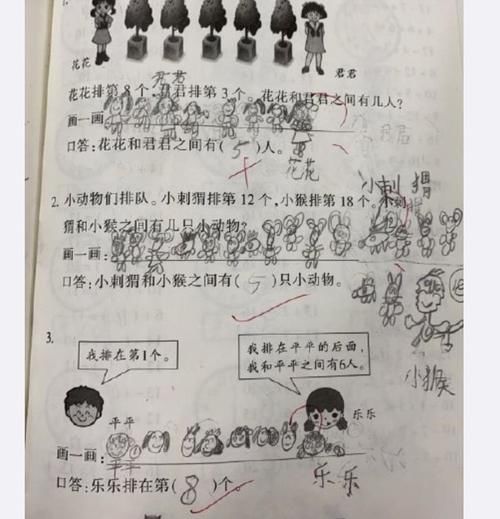 1.
花花
君君
君君
花花排第8个,君君排第3个。花花和君君之间有几人?
画一画
口答:花花和君君之间有(5)人。
花花
小刺猬
2.小动物们排队。小刺猬排第12个,小猴排第18个。小刺
猬和小猴之间有几只小动物?
画一画:
口答:小刺猬和小猴之间有(5)只小动物。
小猴
3.
我排在第1个。
我排在平平的后面,
我和平平之间有6人。
平平
乐乐
画一画:
平平
乐乐
口答:乐乐排在第(8)个。